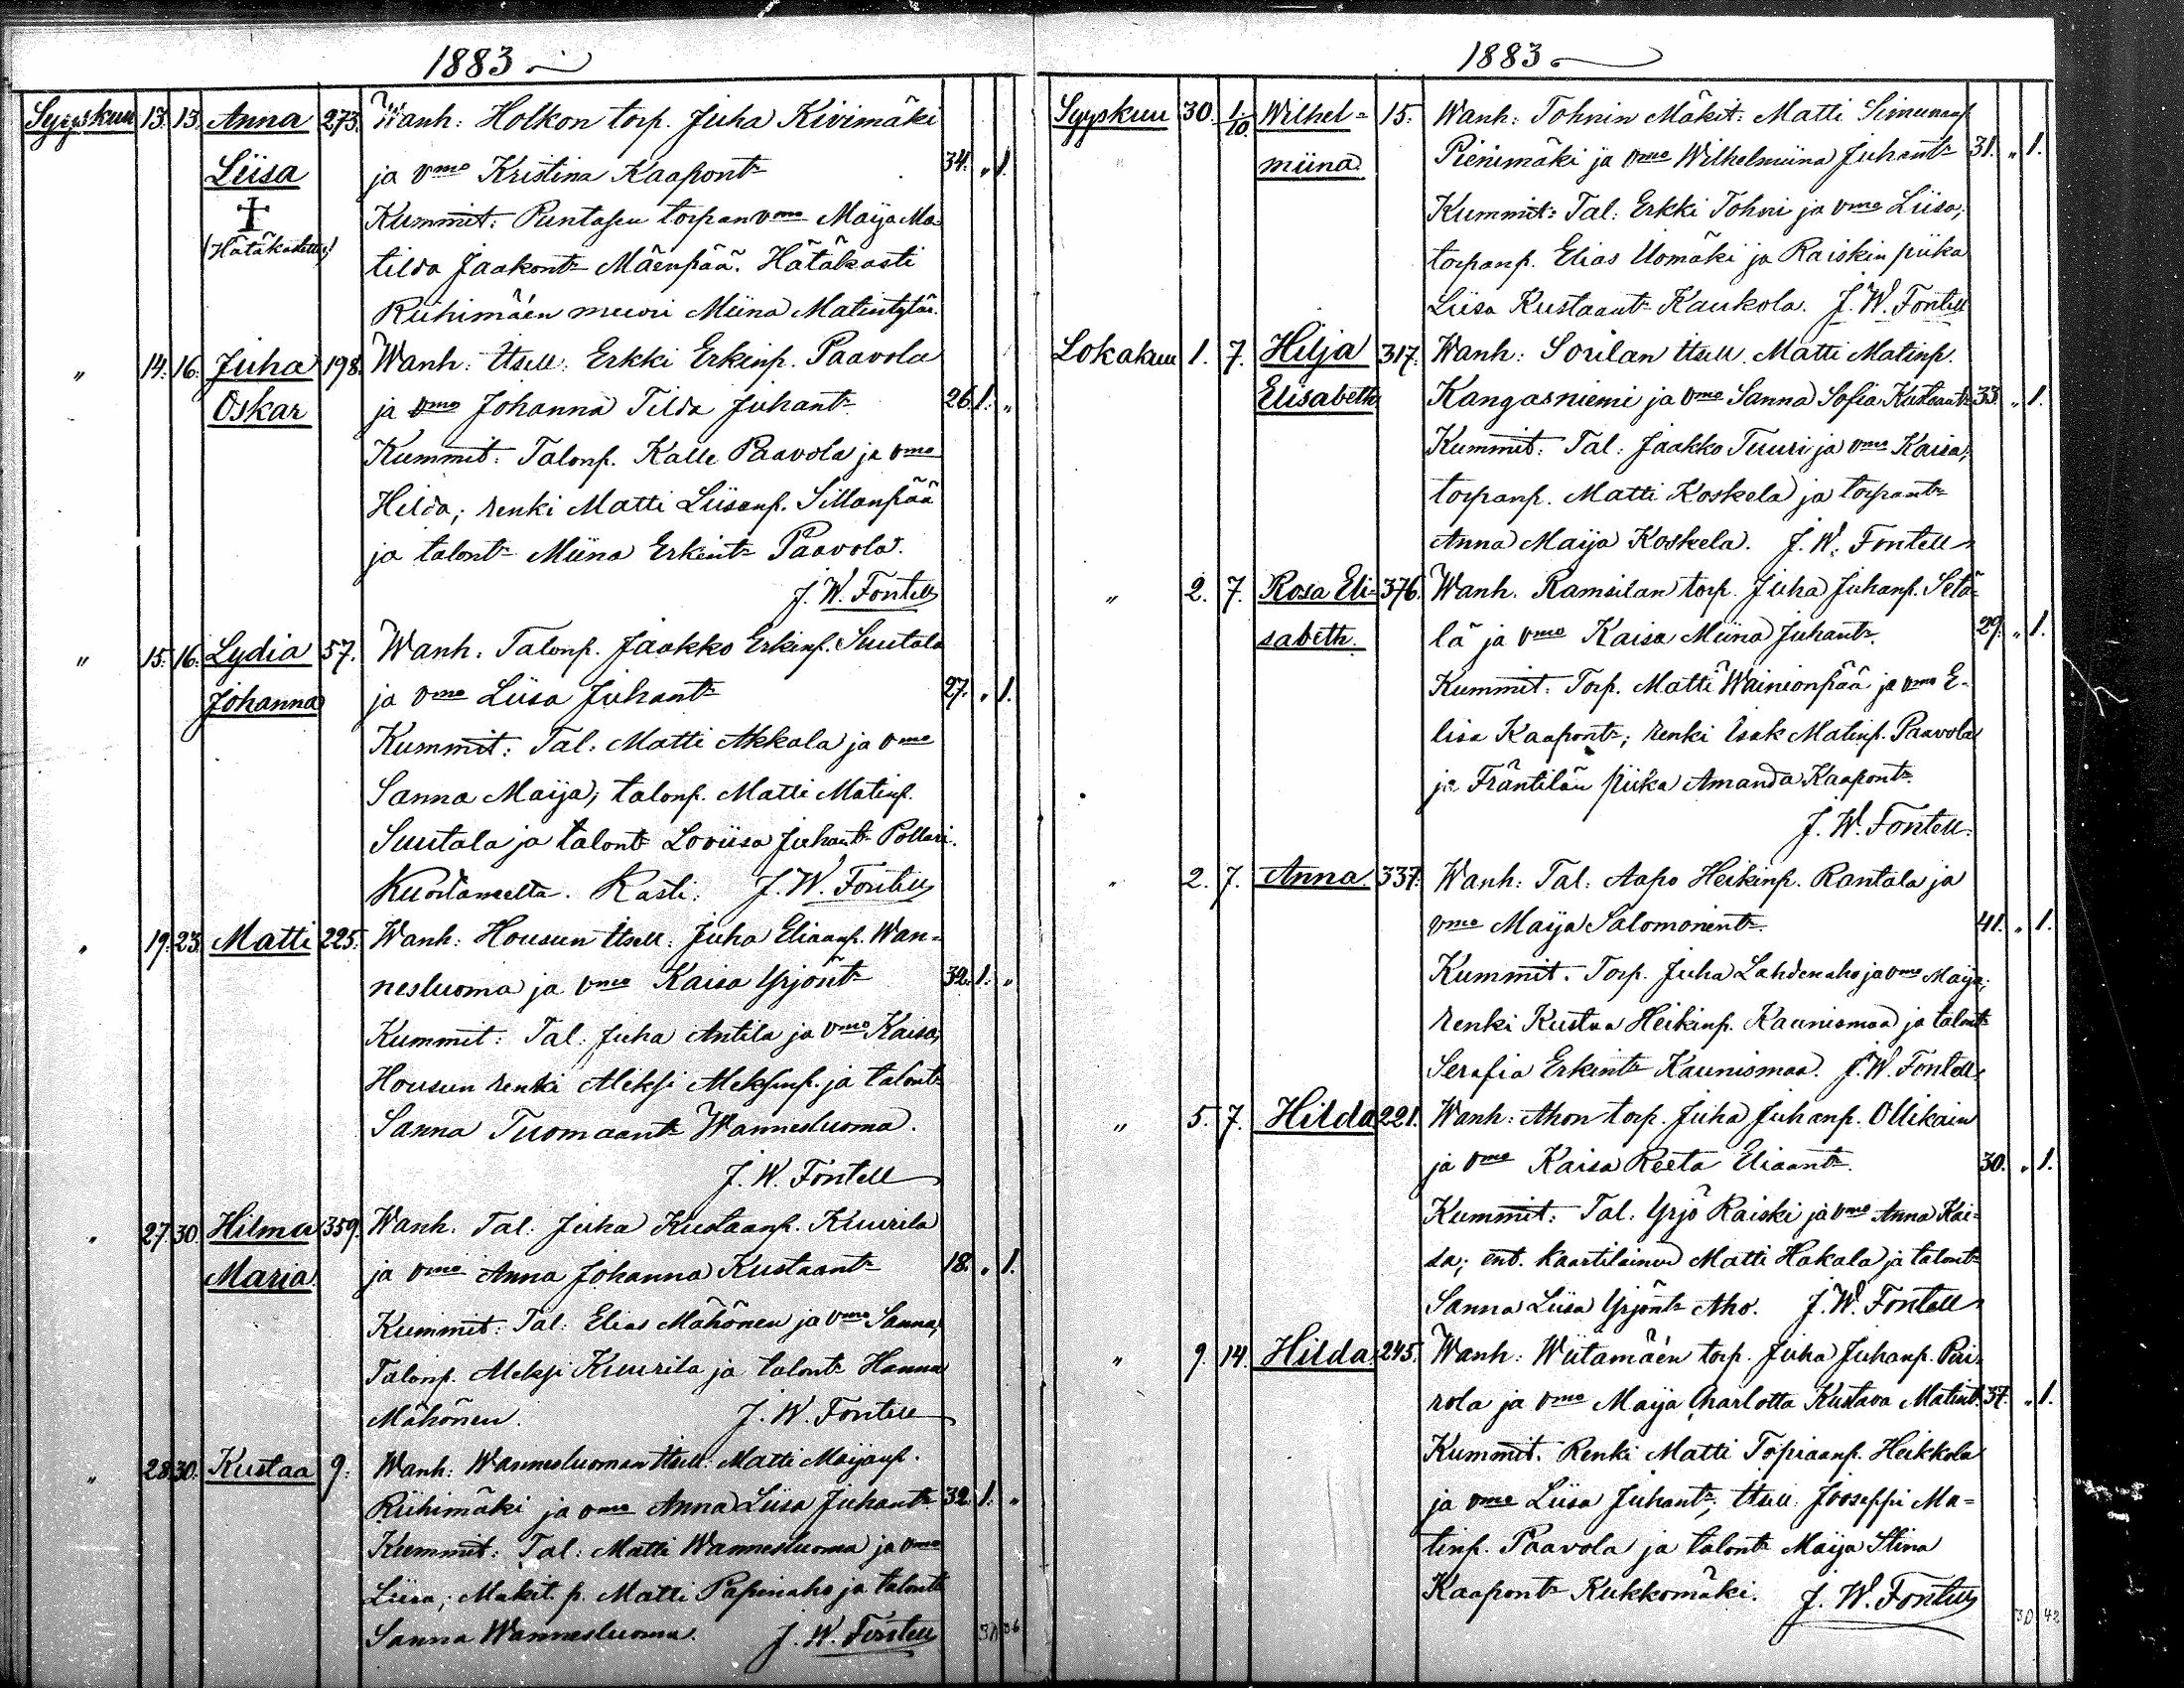 1883
Syyskuu 13. 13. Anna 273. Wanh: Holkon torp. Juha Kivimäki
Liisa ja vmo Kristina Kaapontr 34. „ 1.
Kummit: Puntasen torpan vmo Maija Ma-
(Hätäkastettu) tilda Jaakontr Mäenpää. Hätäkasti
Riihimäen muori Miina Matintytär.
„ 14. 16. Juha 198. Wanh: Itsell. Erkki Erkinp. Paavola
Oskar ja vmo Johanna Tilda Juhantr 26. 1. „
Kummit: Talonp. Kalle Paavola ja vmo
Hilda; renki Matti Liisanp. Sillanpää
ja talontr Miina Erkintr Paavola.
J. W. Fontell
„ 15. 16. Lydia 57. Wanh: Talonp. Jaakko Erkinp. Suutala
Johanna ja vmo Liisa Juhantr 27. „ 1.
Kummit: Tal: Matti Akkala ja vmo
Sanna Maija; talonp. Matti Matinp.
Suutala ja talontr Loviisa Juhantr Pollari.
Kuortaneelta. Kasti: J. W. Fontell
„ 19. 23. Matti 225. Wanh: Housun Itsell: Juha Eliaanp. Wan-
nesluoma ja vmo Kaisa Yrjöntr 32. 1. „
Kummit: Tal: Juha Antila ja vmo Kaisa;
Housun renki Aleksi Aleksinp. ja talontr
Sanna Tuomaantr Wannesluoma.
J. W. Fontell
„ 27. 30. Hilma 359. Wanh. Tal. Juha Kustaanp. Kuurila
Maria ja vmo Anna Johanna Kustaantr 18. „ 1.
Kummit: Tal: Elias Mähönen ja vmo Sanna;
Talonp. Aleksi Kuurila ja talontr Hanna
Mähönen. J. W. Fontell
„ 28. 30. Kustaa 9. Wanh: Wannesluoman Itsell: Matti Maijanp.
Riihimäki ja vmo Anna Liisa Juhantr 32. 1. „
Kummit: Tal: Matti Wannesluoma ja vmo
Liisa; Mäkit. p. Matti Papinaho ja talontr
Sanna Wannesluoma. J. W. Fontell 36
1883
Syyskuu 30. 1/10 Wilhel- 15. Wanh: Tohnin Mäkit: Matti Simunanp.
„ miina Pienimäki ja vmo Wilhelmiina Juhantr 31. „ 1.
Kummit: Tal: Erkki Tohni ja vmo Liisa;
torpanp. Elias Uomäki ja Raiskin piika
Liisa Kustaantr Kaukola. J. W. Fontell
Lokakuu 1. 7. Hilja 317. Wanh: Sorilan Itsell. Matti Matinp.
Elisabeth Kangasniemi ja vmo Sanna Sofia Kustaantr 33. „ 1.
Kummit: Tal: Jaakko Tuuri ja vmo Kaisa;
torpanp. Matti Koskela ja torpantr
Anna Maija Koskela. J. W. Fontell
„ 2. 7. Rosa Eli- 376. Wanh. Ramsilan torp. Juha Juhanp. Setä-
sabeth. lä ja vmo Kaisa Miina Juhantr. 29. „ 1.
Kummit: Torp. Matti Wainionpää ja vmo E-
lisa Kaapontr; renki Isak Matinp. Paavola
ja Fräntilän piika Amanda Kaapontr.
J. W. Fontell.
„ 2. 7. Anna. 337. Wanh: Tal: Aapo Heikinp. Rantala ja
vmo Maija Salomonintr. 41. „ 1.
Kummit. Torp. Juha Lahdenaho ja vmo Maija;
renki Kustaa Heikinp. Kaunismaa ja talontr
Serafia Erkintr Kaunismaa. J. W. Fontell
„ 5. 7. Hilda 221. Wanh: Ahon torp. Juha Juhanp. Ollikain
ja vmo Kaisa Reeta Eliaantr. 30. „ 1.
Kummit: Tal: Yrjö Raiski ja vmo Anna Kai-
sa; ent. kaartilainen Matti Hakala ja talontr
Sanna Liisa Yrjöntr Aho. J. W. Fontell
„ 9. 14. Hilda 245. Wanh: Wiitamäen torp. Juha Juhanp. Piri-
rola ja vmo Maija Charlotta Kustava Matint. 37. „ 1.
Kummit. Renki Matti Topiaanp. Heikkola
ja vmo Liisa Juhantr; Itsell. Jooseppi Ma-
tinp. Paavola ja talontr Maija Stina
Kaapontr Kukkomäki. J. W. Fontell 30 42